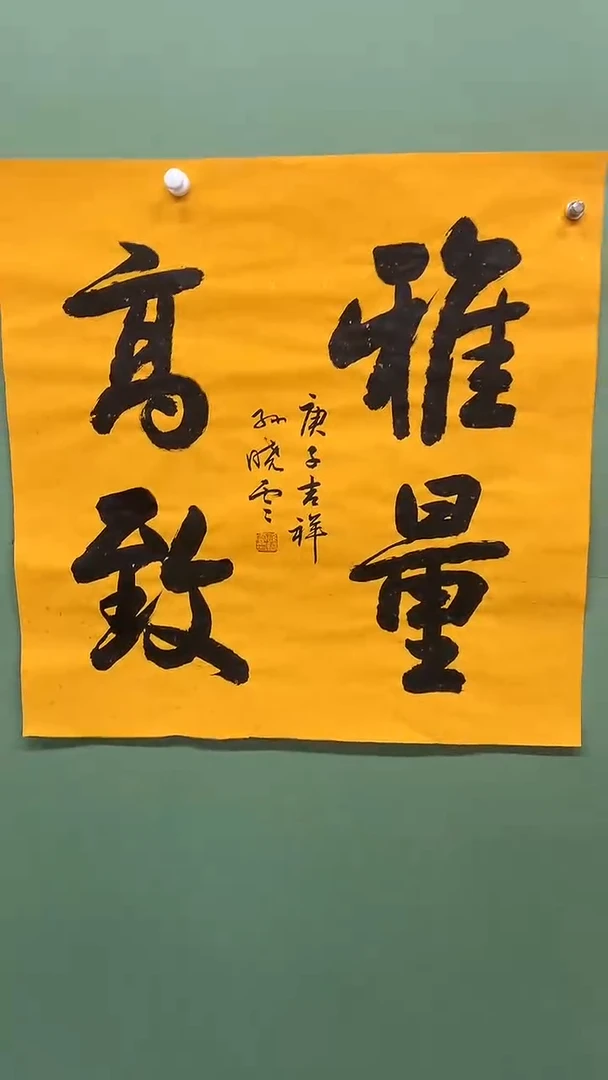 雅量
高致
庚子吉祥
孙晓云